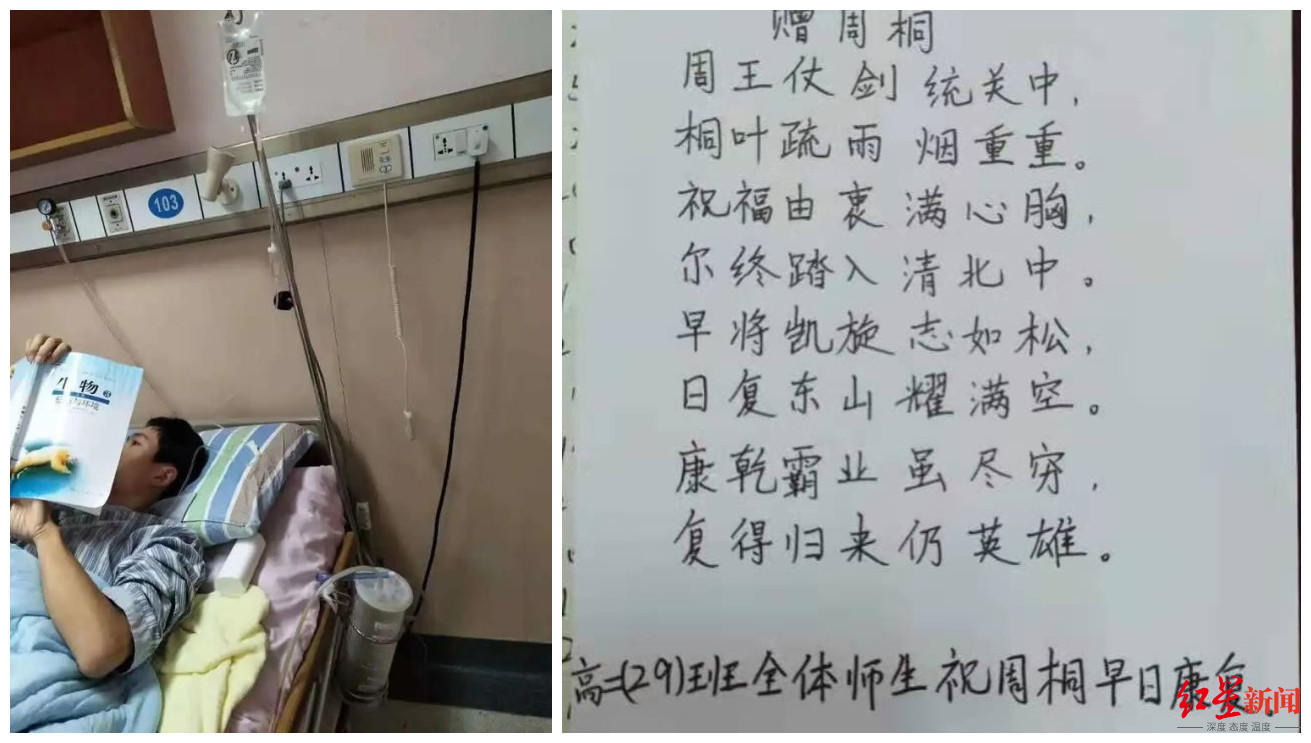 103
物
3
赠周桐
周王仗剑统关中，
桐叶疏雨烟重重。
祝福由衷满心胸，
尔终踏入清北中。
早将凯旋志如松，
日复东山耀满空。
康乾霸业虽尽穷，
复得归来仍英雄。
高二(29)班全体师生祝周桐早日康复。
红星新闻
深度 态度 温度